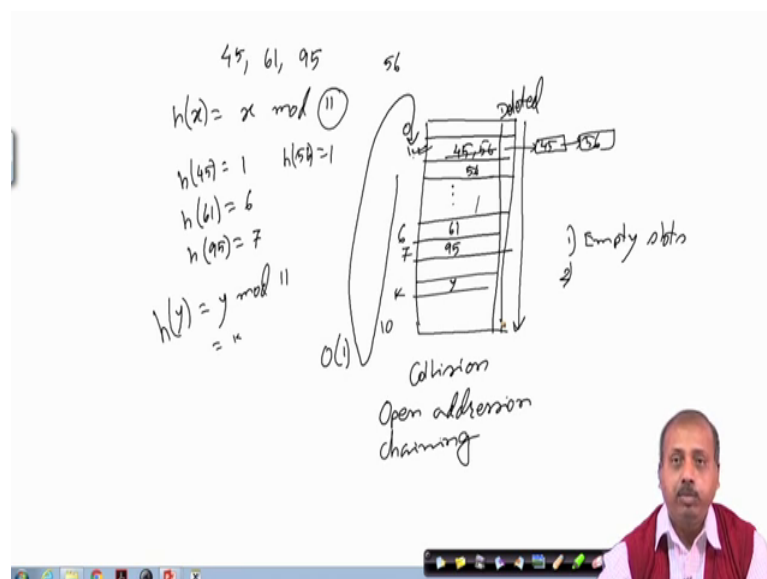 45, 61, 95 56
h(x) = x mod 11
h(45) = 1 h(56) = 1
h(61) = 6
h(95) = 7
h(y) = y mod 11
= k
O(1)
Deleted
0
1
45, 56
45
56
56
6 61
7 95
k y
10
1) Empty slots
2)
Collision
Open addression
chaining